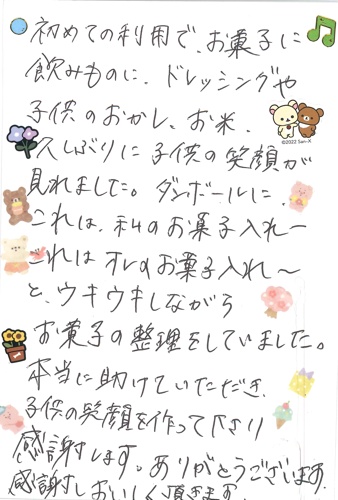 初めての利用で、お菓子に
飲みものに、ドレッシングや
子供のおかし、お米、
©2022 San-X
久しぶりに子供の笑顔が
見れました。ダンボールに、
これは、私のお菓子入れー
これはオレのお菓子入れ〜
と、ウキウキしながら
お菓子の整理をしていました。
本当に助けていただき、
子供の笑顔を作って下さり
感謝します。ありがとうございます。
感謝しおいしく頂きます。